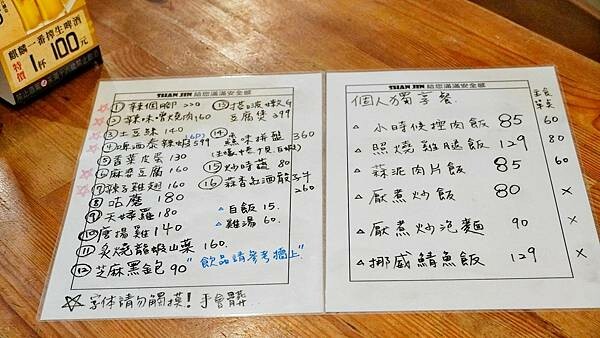 麒麟一番搾生啤酒
特價 1杯 100元
TSIAN JIN 給您滿滿安全感
① 辣個腳 220
② 辣味雪燒肉 160
③ 土豆絲 140
④ 啤酒泰辣蝦 599
⑤ 香菜皮蛋 130
⑥ 麻婆豆腐 160
⑦ 辣子雞翅 160
⑧ 咕麈 180
⑨ 天婦羅 180
⑩ 唐揚雞 140
⑪ 炙燒龍蝦山葉 160.
⑫ 芝麻黑金包 90
⑬ 搭啵嫩G
豆腐煲 399
⑭ 鱻味拼盤 360
⑮ 炒時蔬 80
⑯ 蒜香奶油骰子牛
260
△ 白飯 15.
△ 雞湯 60.
"飲品請參考牆上"
☆ 字体請勿觸摸!手會髒
TSIAN JIN 給您滿滿安全感
個人獨享餐
主食
單点
△ 小時候控肉飯 85 60
△ 照燒雞腿飯 129 80
△ 蒜泥肉片飯 85 60
△ 厭煮炒飯 80 X
△ 厭煮炒泡麵 90 X
△ 挪威鯖魚飯 129 X